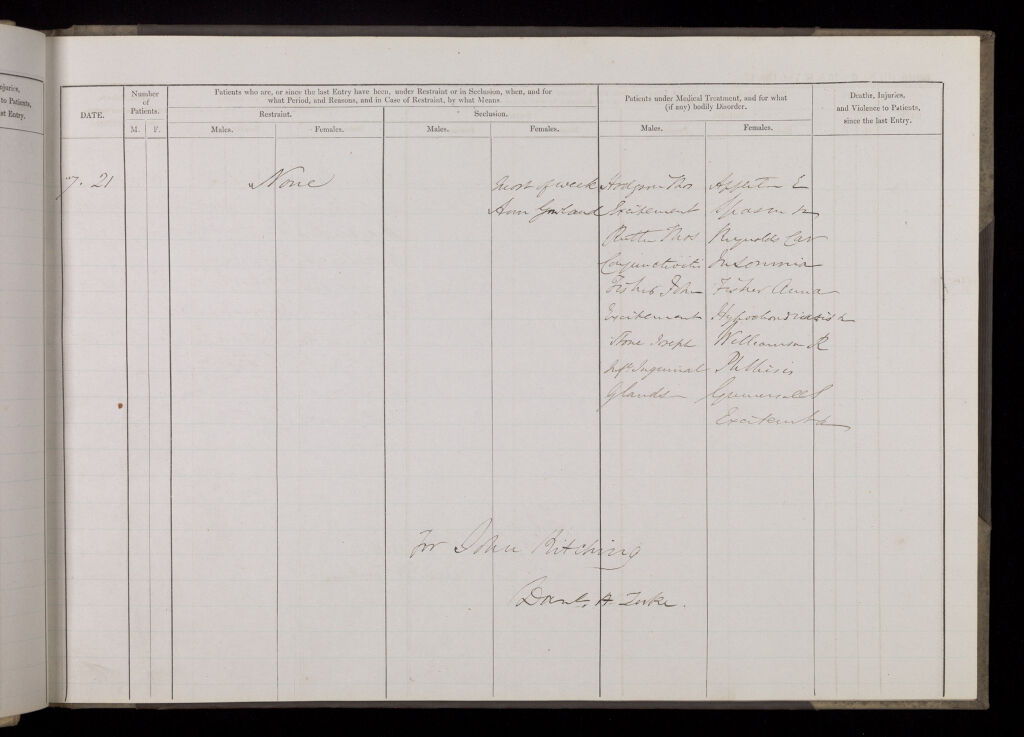 njuries,
to Patients,
st Entry.
DATE.
Number
of
Patients.
M.
F.
Patients who are, or since the last Entry have been, under Restraint or in Seclusion, when, and for
what Period, and Reasons, and in Case of Restraint, by what Means.
Restraint.
Males.
Females.
Seclusion.
Males.
Females.
Patients under Medical Treatment, and for what
(if any) bodily Disorder.
Males.
Females.
Deaths, Injuries,
and Violence to Patients,
since the last Entry.
7. 21
None
Most of week
Ann
Hodgson Thos
Excitement
Thos
Conjunctivitis
Fisher John
Excitement
Stone Joseph
Inguinal
Glands
Appleton E
Spasm
Reynolds Car
Insomnia
Fisher Anna
Williamson R
Phthisis
For John Kitching
Danl. H Tuke.